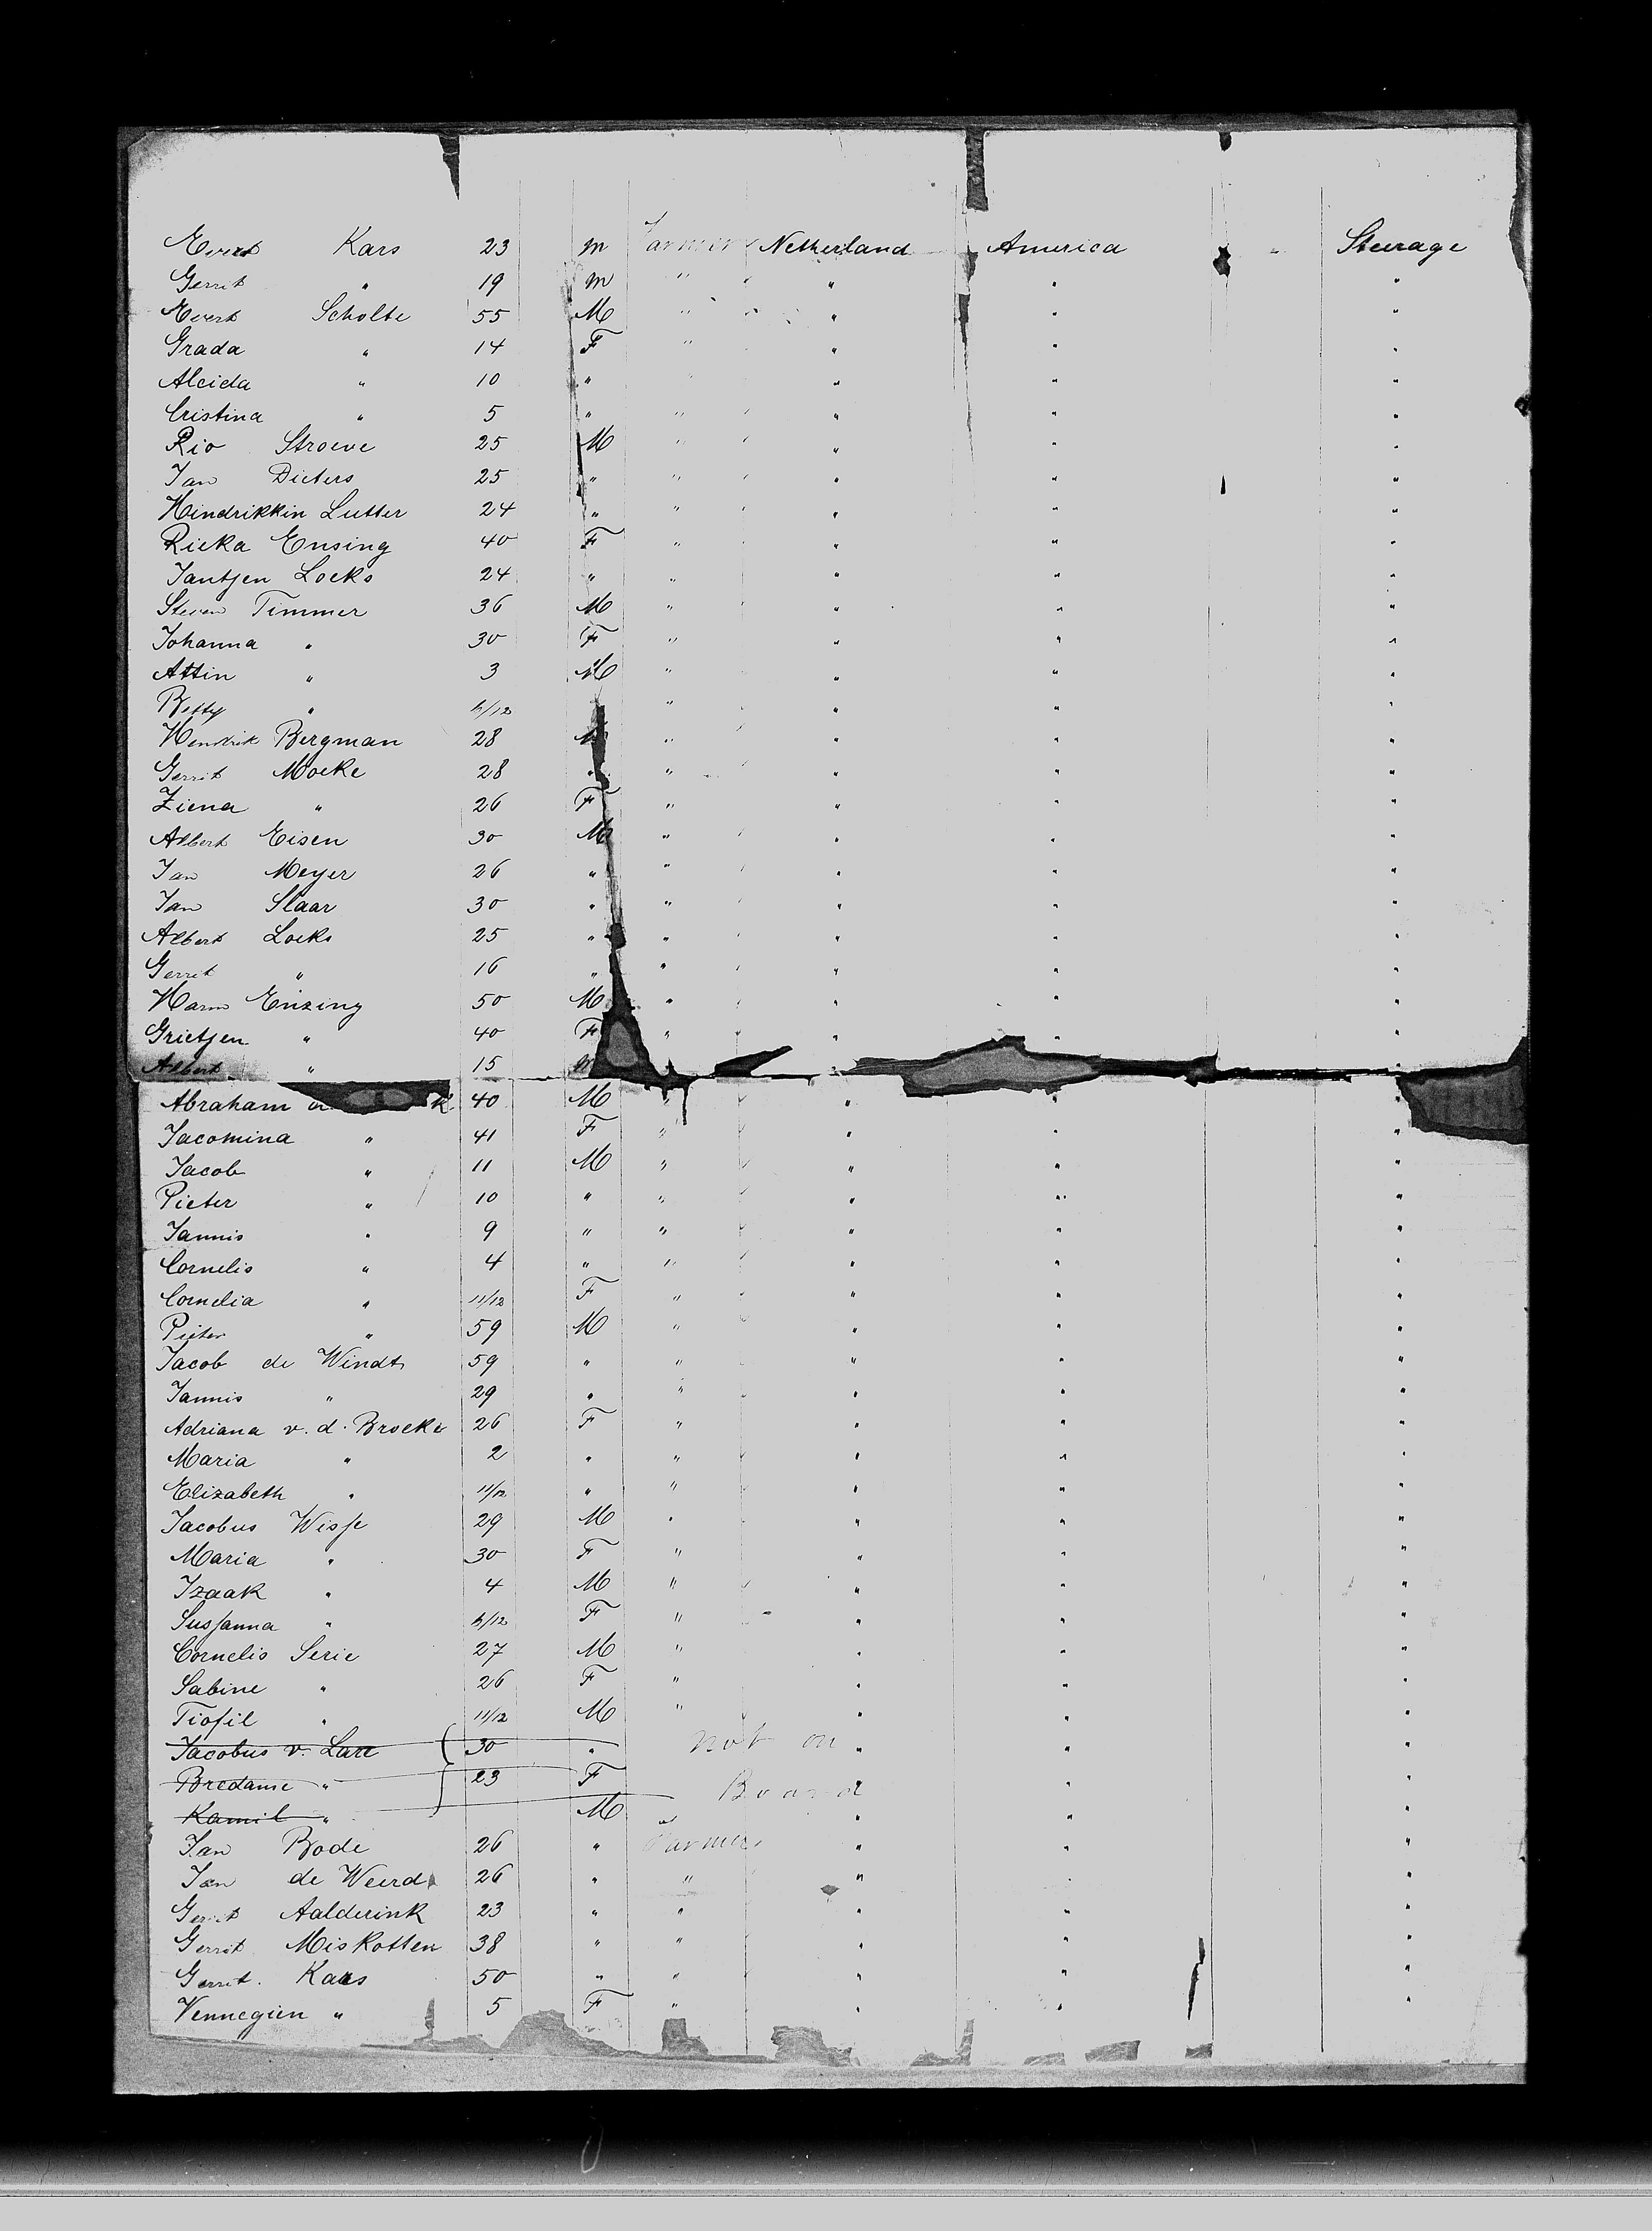 Evert Kars 23 M Farmer Netherland America Steerage
Gerrit " 19 M " " " "
Evert Scholte 55 M " " " "
Grada " 14 F " " " "
Aleida " 10 " " " "
Cristina " 5 " " " " "
Rio Stroeve 25 M " " " "
Jan Dieters 25 " " " " "
Hindrikkin Lutter 24 " " " " "
Ricka Ensing 40 F " " " "
Jantjen Loeks 24 " " " " "
Steven Timmer 36 M " " " "
Johanna " 30 F " " " "
Attin " 3 M " " " "
Betty " /12 " " " "
Hendrik Bergman 28 M " " " "
Gerrit Moeke 28 " " " " "
Ziena " 26 F " " " "
Albert Eisen 30 M " " " "
Jan Meyer 26 " " " " "
Jan Slaar 30 " " " " "
Albert Loeks 25 " " " " "
Gerrit " 16 " " " " "
Harm Enzing 50 M " " " "
Grietjen " 40 F " " " "
Albert " 15 M
Abraham 40 M " " " "
Jacomina " 41 F " " " "
Jacob " 11 M " " " "
Pieter " 10 " " " " "
Jannis " 9 " " " " "
Cornelis " 4 " " " " "
Cornelia " 11/12 F " " " "
Pieter " 59 M " " " "
Jacob de Windt 59 " " " " "
Jannis " 29 " " " " "
Adriana v. d. Broeke 26 F " " " "
Maria " 2 " " " " "
Elizabeth " 11/12 " " " " "
Jacobus Wisse 29 M " " " "
Maria " 30 F " " " "
Izaak " 4 M " " " "
Sussanna " /12 F " " " "
Cornelis Serie 27 M " " " "
Sabine " 26 F " " " "
Tiofil " 11/12 M " " " "
Jacobus v. Lare 30 " not on " " "
Bredanie " 23 F Board " " "
Kamil " M " " " "
Jan Bode 26 " Farmer " " "
Jan de Weerd 26 " " " " "
Gerrit Aalderink 23 " " " " "
Gerrit Miskotten 38 " " " " "
Gerrit Kars 50 " " " " "
Vennegien " 5 F " " " "